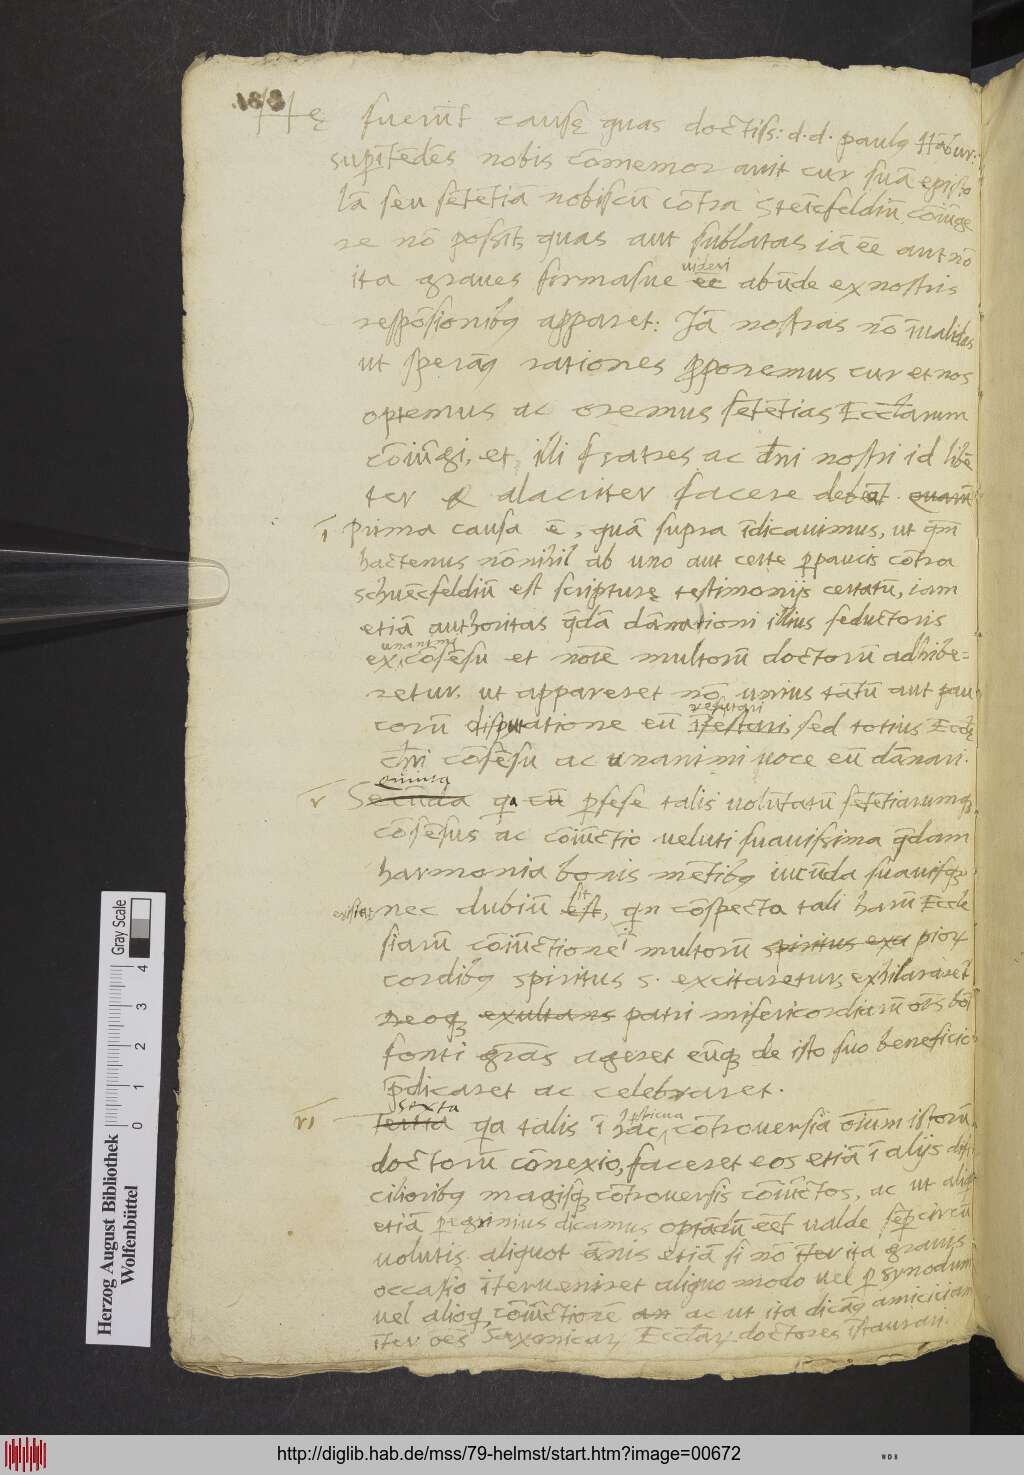 Hę fuerūt causę quas doctiss: d. d. paulꝯ
supītēdēs nobis cōmemoravit cur suā episto
lā seu sētētiā nobiscū cōtra Stēcfeldiū cōiūge
re nō possit, quas aut sublatas iā ēē aut nō
videri
ita graves firmasve ēē abūde ex nostris
respōsionibꝯ apparet: Jā nostras nō īvalidas
ut sperāꝯ rationes ꝓponemus cur et nos
optemus ac oremus sētētias Eccłarum
cōiūgi, et illi fratres ac dn̄i nostri id libē
ter & alacriter facere debēāt. quarū
i prima causa ē, quā supra īdicavimus, ut qm̄
hactenus nōnihil ab uno aut certe ꝑpaucis cōtra
schvēcfeldiū est scripturę testimonijs certatū, iam
etiā authoritas q̄dā dānationi illius seductoris
unanimi
ex cōsēsu et noīe multorū doctorū adhibe=
retur. ut appareret nō unius tātū aut pau
refutari
corū disputatione eū īfestari, sed totius Eccłę
chr̄i cōsēsu ac unanimi voce eū dānari.
Quinta
v Secūda qa cū ꝑ sese talis volūtatū sētētiarumqꝫ
cōsēsus ac cōiūctio veluti suavissima q̄dam
harmonia bonis mētibꝯ iucūda suavisqꝫ
existat nec dubiū est, sit qn cōspecta tali harū Eccle
siarū cōiūctione ī multorū spiritus exa pioꝝ
cordibꝯ spiritus s. excitaretur, exhilararet
deoqꝫ exultans patri misericordiarū oīs boī
fonti grās ageret eūqꝫ de isto suo beneficio
p̄dicaret ac celebraret.
Sexta
vi Tertia qa talis ī hac controversia oīum istorū
doctorū cōnexio, faceret eos etiā ī alijs diffi
cilioribꝯ magisqꝫ cōtroversis cōiūctos, ac ut aliqꝫ
etiā dicamus optādū eēt valde sēp circū
volutis aliquot ānis etiā si nō īter ita gravis
occasio īterveniret aliquo modo vel ꝑ synodum
vel alioq, cōiūctionē an ac ut ita dicāꝯ amicitiam
īter oēs Saxonicaꝝ Eccłaꝝ doctores īstaurari.
Herzog August Bibliothek
Wolfenbüttel
Gray Scale
0 1 2 3 4
http://diglib.hab.de/mss/79-helmst/start.htm?image=00672